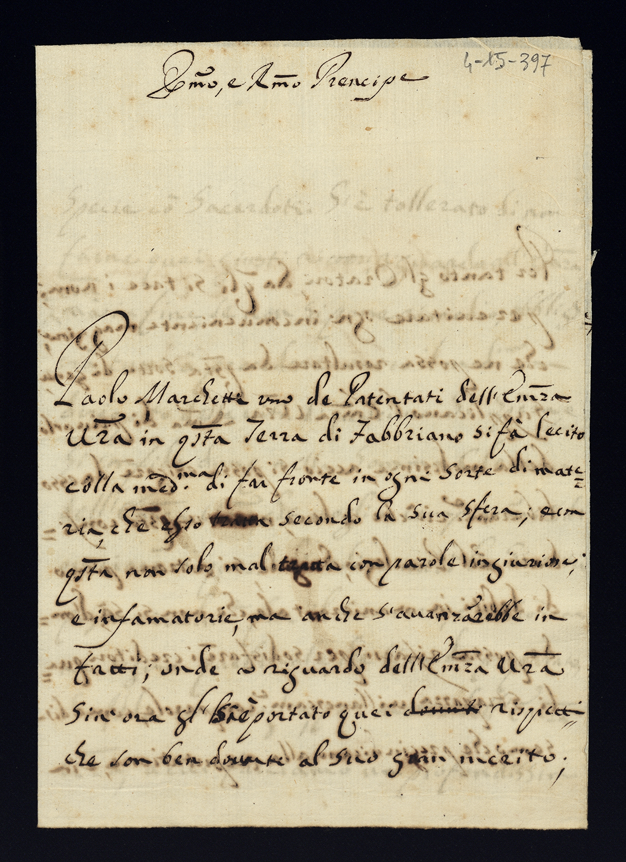 4-XV-397
Emo, e Rmo Prencipe
Paolo Marchetti uno de Patentati dell'Emza
Vra in qsta Terra di Fabbriano si fà lecito
colla medma di far fronte in ogni sorte di mate=
ria, che esso secondo la sua sfera; e con
qsta non solo mal tratta con parole ingiuriose,
e infamatorie, ma anche s'avanzarebbe in
fatti; onde a riguardo dell'Emza Vra
sin'ora gl' portato quei douuti rispetti
che son ben douute al suo gran merito;